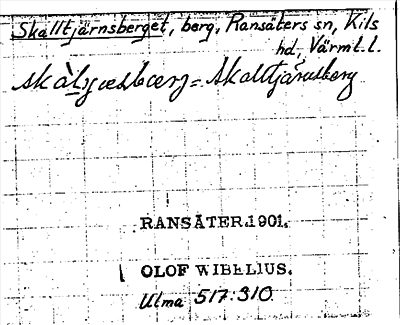 Skalltjärnsberget, berg, Ransäters sn, Kils
hd, Värml. l.
Skalltjärnsberg
RANSÄTER.1901.
OLOF WIBELIUS.
Ulma 517:310.